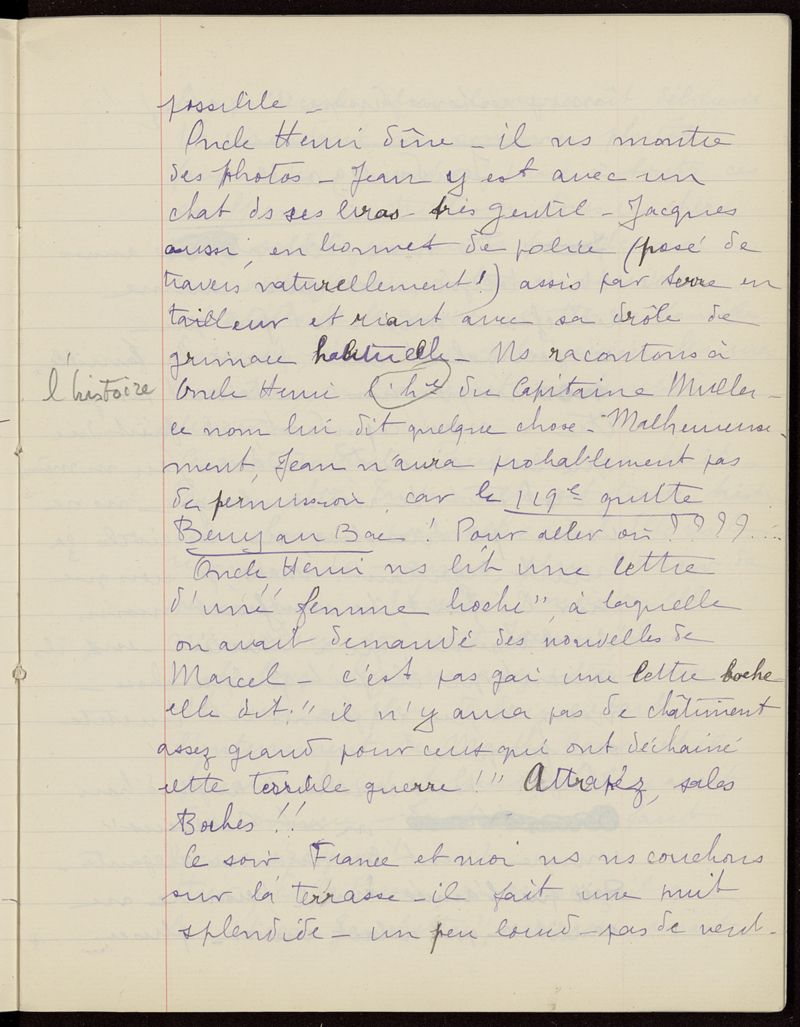 possible _
Oncle Henri dîne _ il ns montre
des photos _ Jean y est avec un
chat ds ses bras _ très gentil _ Jacques
aussi, en bonnet de police (posé de
travers naturellement !) assis par terre en
tailleur et riant avec sa drôle de
grimace habituelle _ Ns racontons à
l'histoire
Oncle Henri l'hre du Capitaine Muller _
ce nom lui dit quelque chose _ Malheureuse-
ment, Jean n'aura probablement pas
de permission, car le 119e quitte
Berry au Bac ! Pour aller où ????...
Oncle Henri ns lit une lettre
d'une "femme boche", à laquelle
on avait demandé des nouvelles de
Marcel _ c'est pas gai une lettre boche
elle dit : "il n'y aura pas de châtiment
assez grand pour ceux qui ont déchaîné
cette terrible guerre !" Attrapez, sales
Boches !!
Ce soir France et moi ns ns couchons
sur la terrasse _ il fait une nuit
splendide _ un peu lourd _ pas de vent _